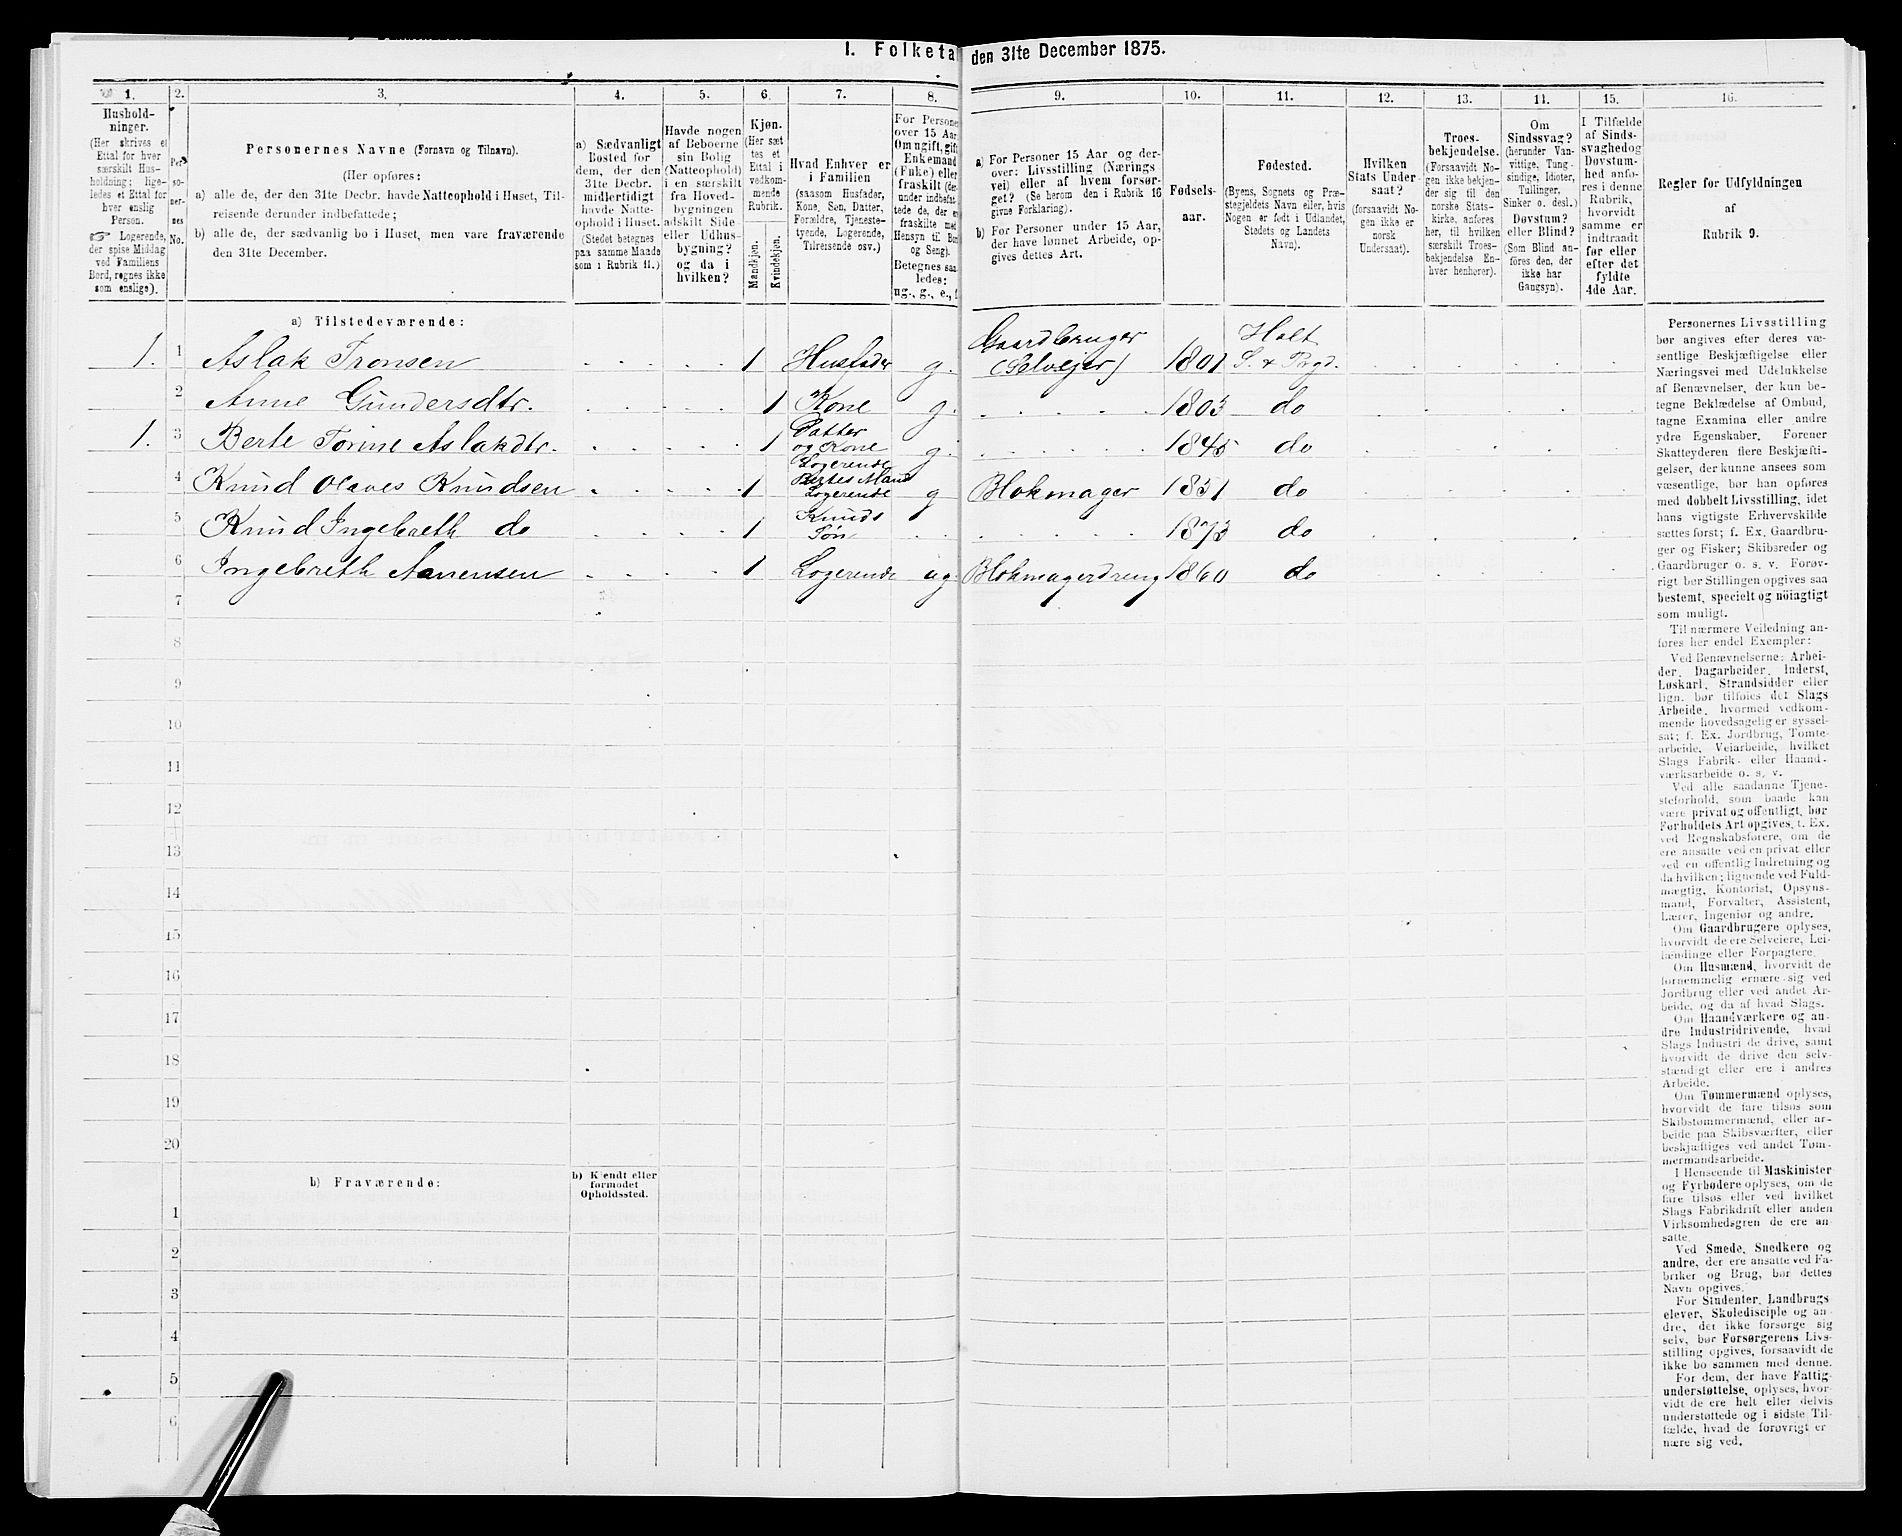 I. Folketal den 31te December 1875.
1. 2. 3. 4. 5. 6. 7. 8. 9. 10. 11. 12. 13. 14. 15. 16.
Hushold-
ninger.
(Her skrives et
Ettal for hver
særskilt Hus-
holdning; lige-
ledes et Ettal for
hver enslig
Person.
☞ Logerende,
der spise Middag
ved Familiens
Bord, regnes ikke
som enslige).
Per-
so-
ner-
nes
No.
Personernes Navne (Fornavn og Tilnavn).
(Her opføres:
a) alle de, der den 31te Decbr. havde Natteophold i Huset, Til-
reisende derunder indbefattede;
b) alle de, der sædvanlig bo i Huset, men vare fraværende
den 31te December.
a) Sædvanligt
Bosted for
dem, der den
31te Decbr.
midlertidigt
havde Natte-
ophold i Huset.
(Stedet betegnes
paa samme Maade
som i Rubrik 11.)
Havde nogen
af Beboerne
sin Bolig
(Natteophold)
i en særskilt
fra Hoved-
bygningen
adskilt Side-
eller Udhus-
bygning?
og da i
hvilken?
Kjøn.
(Her sæt-
tes et
Ettal i
vedkom-
mende
Rubrik.
Mandkjøn.
Kvindekjøn.
Hvad Enhver er
i Familien
(saasom Husfader,
Kone, Søn, Datter,
Forældre, Tjeneste-
tyende, Logerende,
Tilreisende osv.)
For Persone
over 15 Aar
Om ugift, gift
Enkemand
(Enke) eller
fraskilt (der-
under indbefat-
tede de, der er
fraskilte med
Hensyn til Bord
og Seng).
Betegnes saa-
ledes:
ug., g., e., f.
a) For Personer 15 Aar og der-
over: Livsstilling (Nærings-
vei) eller af hvem forsør-
get? (Se herom den i Rubrik 16
givne Forklaring).
b) For Personer under 15 Aar,
der have lønnet Arbeide, op-
gives dettes Art.
Fødsels-
aar.
Fødested.
(Byens, Sognets og Præ-
stegjeldets Navn eller, hvis
Nogen er født i Udlandet,
Stedets og Landets
Navn).
Hvilken
Stats Under-
saat?
(forsaavidt No-
gen ikke er
norsk
Undersaat).
Troes-
bekjendelse.
(Forsaavidt No-
gen ikke bekjen-
der sig til den
norske Stats-
kirke, anføres
her, til hvilken
særskilt Troes-
bekjendelse En-
hver henhører).
Om
Sindssvag?
(herunder Van-
vittige, Tung-
sindige, Idioter,
Tullinger,
Sinker o. desl.)
Døvstum?
eller Blind?
(Som Blind an-
føres den, der
ikke har
Gangsyn).
I Tilfælde
af Sinds-
svaghed og
Døvstum-
hed anfø-
res i denne
Rubrik,
hvorvidt
samme er
indtraadt
før eller
efter det
fyldte
4de Aar.
Regler for Udfyldningen
af
Rubrik 9.
a) Tilstedeværende:
1. 1 Aslak Tronsen 1 Husfader g. Gaardbruger (Selvejer) 1801 Holt S. & Prgd.
2 Anne Gundersdtr. 1 Kone g. 1803 do
1. 3 Berte Torine Aslakdtr. 1 Datter og Kone Logerende g. 1845 do
4 Knud Olaves Knudsen 1 Bertes Mand Logerende g Blokmager 1851 do
5 Knud Ingebreth do 1 Knuds Søn 1873 do
6 Ingebreth Aanensen 1 Logerende ug. Blokmagerdreng 1860 do
7
8
9
10
11
12
13
14
15
16
17
18
19
20
b) Fraværende:
b) Kjendt eller
formodet
Opholdssted.
1
2
3
4
5
6
Personernes Livsstilling
bør angives efter deres væ-
sentlige Beskjæftigelse eller
Næringsvei med Udelukkelse
af Benævnelser, der kun be-
tegne Beklædelse af Ombud,
tagne Examina eller andre
ydre Egenskaber. Forener
Skatteyderen flere Beskjæfti-
gelser, der kunne ansees som
væsentlige, bør han opføres
med dobbelt Livsstilling, idet
hans vigtigste Erhvervskilde
sættes først; f. Ex. Gaardbru-
ger og Fisker; Skibsreder og
Gaardbruger o. s. v. Forøv-
rigt bør Stillingen opgives saa
bestemt, specielt og nöiagtigt
som muligt.
Til nærmere Veiledning an-
føres her endel Exempler:
Ved Benævnelserne: Arbei-
der, Dagarbeider, Inderst,
Løskarl, Strandsidder eller
lign. bør tilføies det Slags
Arbeide, hvormed vedkom-
mende hovedsagelig er syssel-
sat; f. Ex. Jordbrug, Tomte-
arbeide, Veiarbeide, hvilket
Slags Fabrik- eller Haand-
værksarbeide o. s. v.
Ved alle saadanne Tjene-
steforhold, som baade kan
være privat og offentligt, bør
Forholdets Art opgives, f. Ex.
ved Regnskabsførere, om de
ere ansatte ved en privat eller
ved en offentlig Indretning og
da hvilken; lignende ved Fuld-
mægtig, Kontorist, Opsyns-
mand, Forvalter, Assistent,
Lærer, Ingeniør og andre.
Om Gaardbrugere oplyses,
hvorvidt de ere Selveiere, Lei-
lændinge eller Forpagtere.
Om Husmænd, hvorvidt de
fornemmelig ernære sig ved
Jordbrug eller ved andet Ar-
beide, og da af hvad Slags.
Om Haandværkere og an-
dre Industridrivende, hvad
Slags Industri de drive, samt
hvorvidt de drive den selv-
stændigt eller ere i andres
Arbeide.
Om Tømmermænd oplyses,
hvorvidt de fare tilsøs som
Skibstømmermænd, eller ar-
beide paa Skibsværfter, eller
beskjæftiges ved andet Tøm-
mermandsarbeide.
I Henseende til Maskinister
og Fyrbødere oplyses, om de
fare tilsøs eller ved hvilket
Slags Fabrikdrift eller anden
Virksomhedsgren de ere an-
satte.
Ved Smede, Snedkere og
andre, der ere ansatte ved Fa-
briker og Brug, bør dettes
Navn opgives.
For Studenter, Landbrugs-
elever, Skoledisciple og an-
dre, der ikke forsørge sig
selv, bør Forsørgerens Livs-
stilling opgives, forsaavidt de
ikke bo sammen med denne.
For dem, der have Fattig-
understøttelse, oplyses, hvor-
vidt de ere helt eller delvis
understøttede og i sidste Til-
fælde, hvad de forøvrigt er-
nære sig ved.